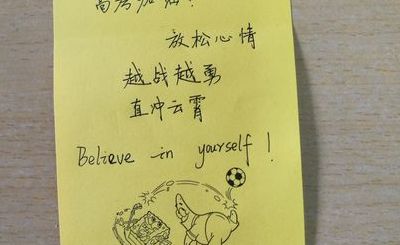 高考加油！
放松心情
越战越勇
直冲云霄
Believe in yourself !